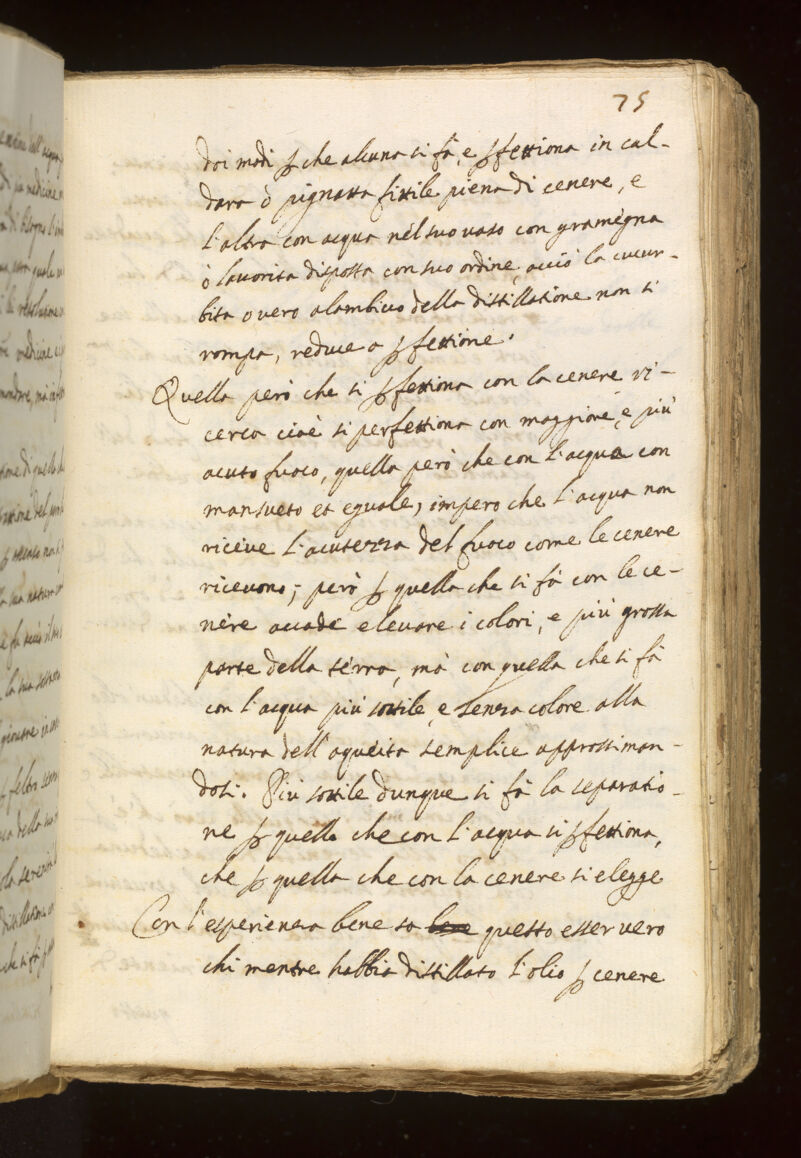 75
doi modi ꝑ che alcuna si fà, e ꝑfettiona in cal-
dara ò pignatta fittile piena di cenere, e
l'altra con acqua nel suo vaso con gramegna
ò lavorita disposta con suo ordine, acciò la cucur-
bita overo alambico della distillatione non si
rompa, reduce a ꝑfettione.
Quella però che si ꝑfettiona con la cenere ri-
cerca cioè si perfettiona con maggiore, e più
acuto fuoco, quella però che con l'acqua con
mansueto et eguale; impero che l'acqua non
riceve l'acutezza del fuoco come le cenere
ricevono; però ꝑ quella che si fà con le ce-
nere accade elevare i colori, e più grossa
parte della terra, mà con quella che si fà
con l'acqua più sottile, e senza colore alla
natura dell'aqueita semplice approssiman-
dosi. Più sottile dunque si fà la separatio-
ne ꝑ quella che con l'acqua si ꝑfettiona,
che ꝑ quella che con la cenere si elegge
Con l'esperienza bene sa questo esser vero
chi mentre habbia distillato l'olio ꝑ cenere